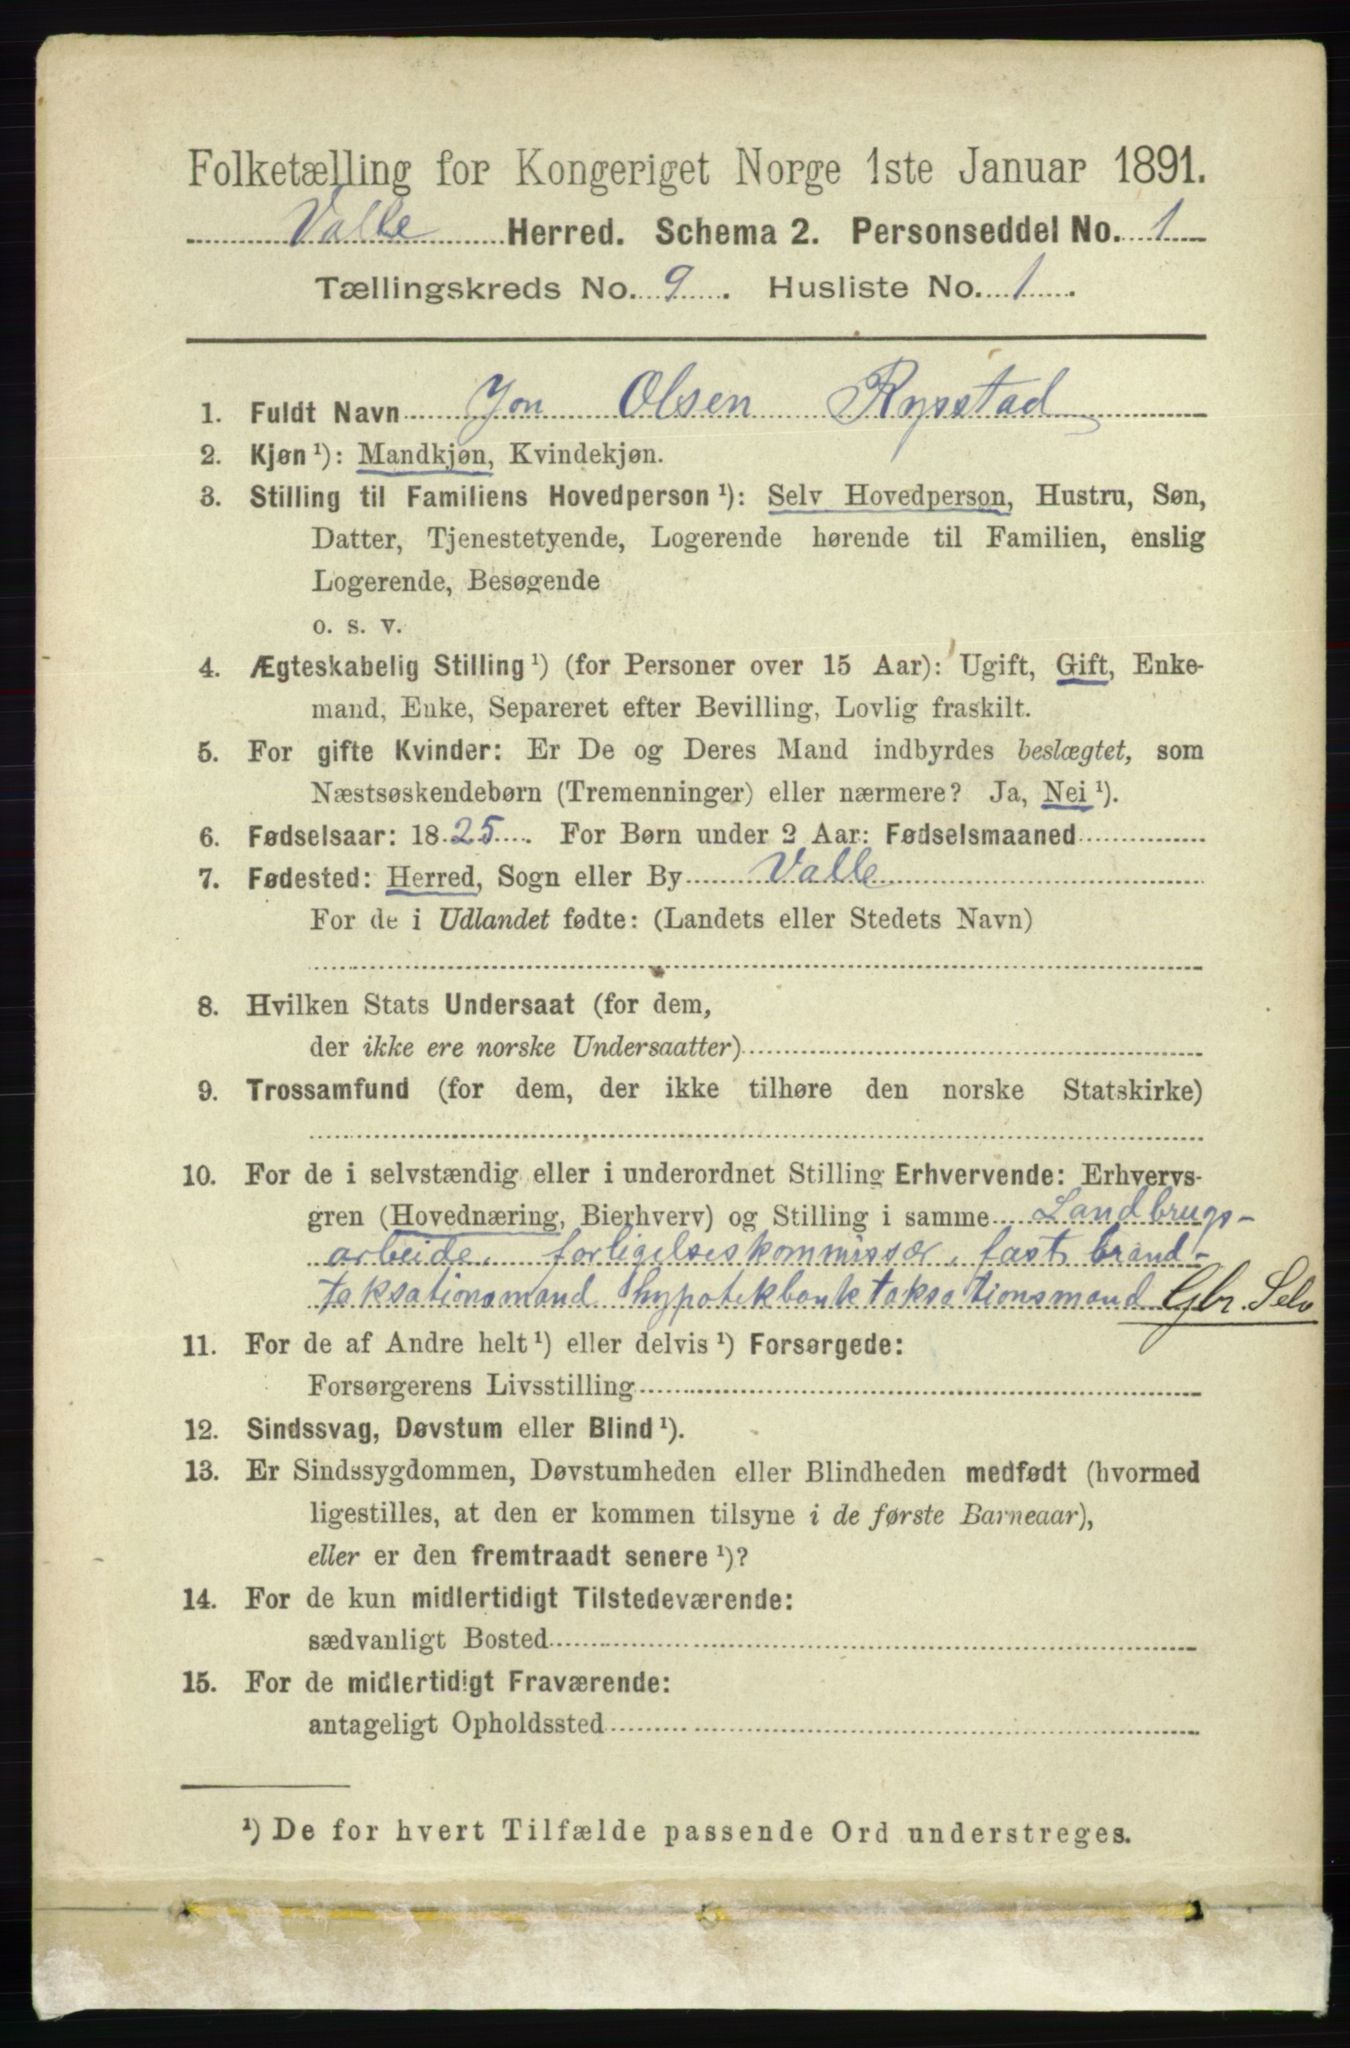 Folketælling for Kongeriget Norge 1ste Januar 1891.
Valle Herred. Schema 2. Personseddel No. 1
Tællingskreds No. 9. Husliste No. 1.
1. Fuldt Navn Jon Olsen Rysstad
2. Kjøn ¹): Mandkjøn, Kvindekjøn.
3. Stilling til Familiens Hovedperson ¹): Selv Hovedperson, Hustru, Søn,
Datter, Tjenestetyende, Logerende hørende til Familien, enslig
Logerende, Besøgende
o. s. v.
4. Ægteskabelig Stilling ¹) (for Personer over 15 Aar): Ugift, Gift, Enke-
mand, Enke, Separeret efter Bevilling, Lovlig fraskilt.
5. For gifte Kvinder: Er De og Deres Mand indbyrdes beslægtet, som
Næstsøskendebørn (Tremenninger) eller nærmere? Ja, Nei ¹).
6. Fødselsaar: 1825. For Børn under 2 Aar: Fødselsmaaned
7. Fødested: Herred, Sogn eller By Valle
For de i Udlandet fødte: (Landets eller Stedets Navn)
8. Hvilken Stats Undersaat (for dem,
der ikke ere norske Undersaatter)
9. Trossamfund (for dem, der ikke tilhøre den norske Statskirke)
10. For de i selvstændig eller i underordnet Stilling Erhvervende: Erhvervs-
gren (Hovednæring, Bierhverv) og Stilling i samme Landbrugs-
arbeide, forligelseskommissær, fast brand-
taksationsmand hypotekbank taksationsmand Gbr. Selv
11. For de af Andre helt ¹) eller delvis ¹) Forsørgede:
Forsørgerens Livsstilling
12. Sindssvag, Døvstum eller Blind ¹).
13. Er Sindssygdommen, Døvstumheden eller Blindheden medfødt (hvormed
ligestilles, at den er kommen tilsyne i de første Barneaar),
eller er den fremtraadt senere ¹)?
14. For de kun midlertidigt Tilstedeværende:
sædvanligt Bosted
15. For de midlertidigt Fraværende:
antageligt Opholdssted
¹) De for hvert Tilfælde passende Ord understreges.